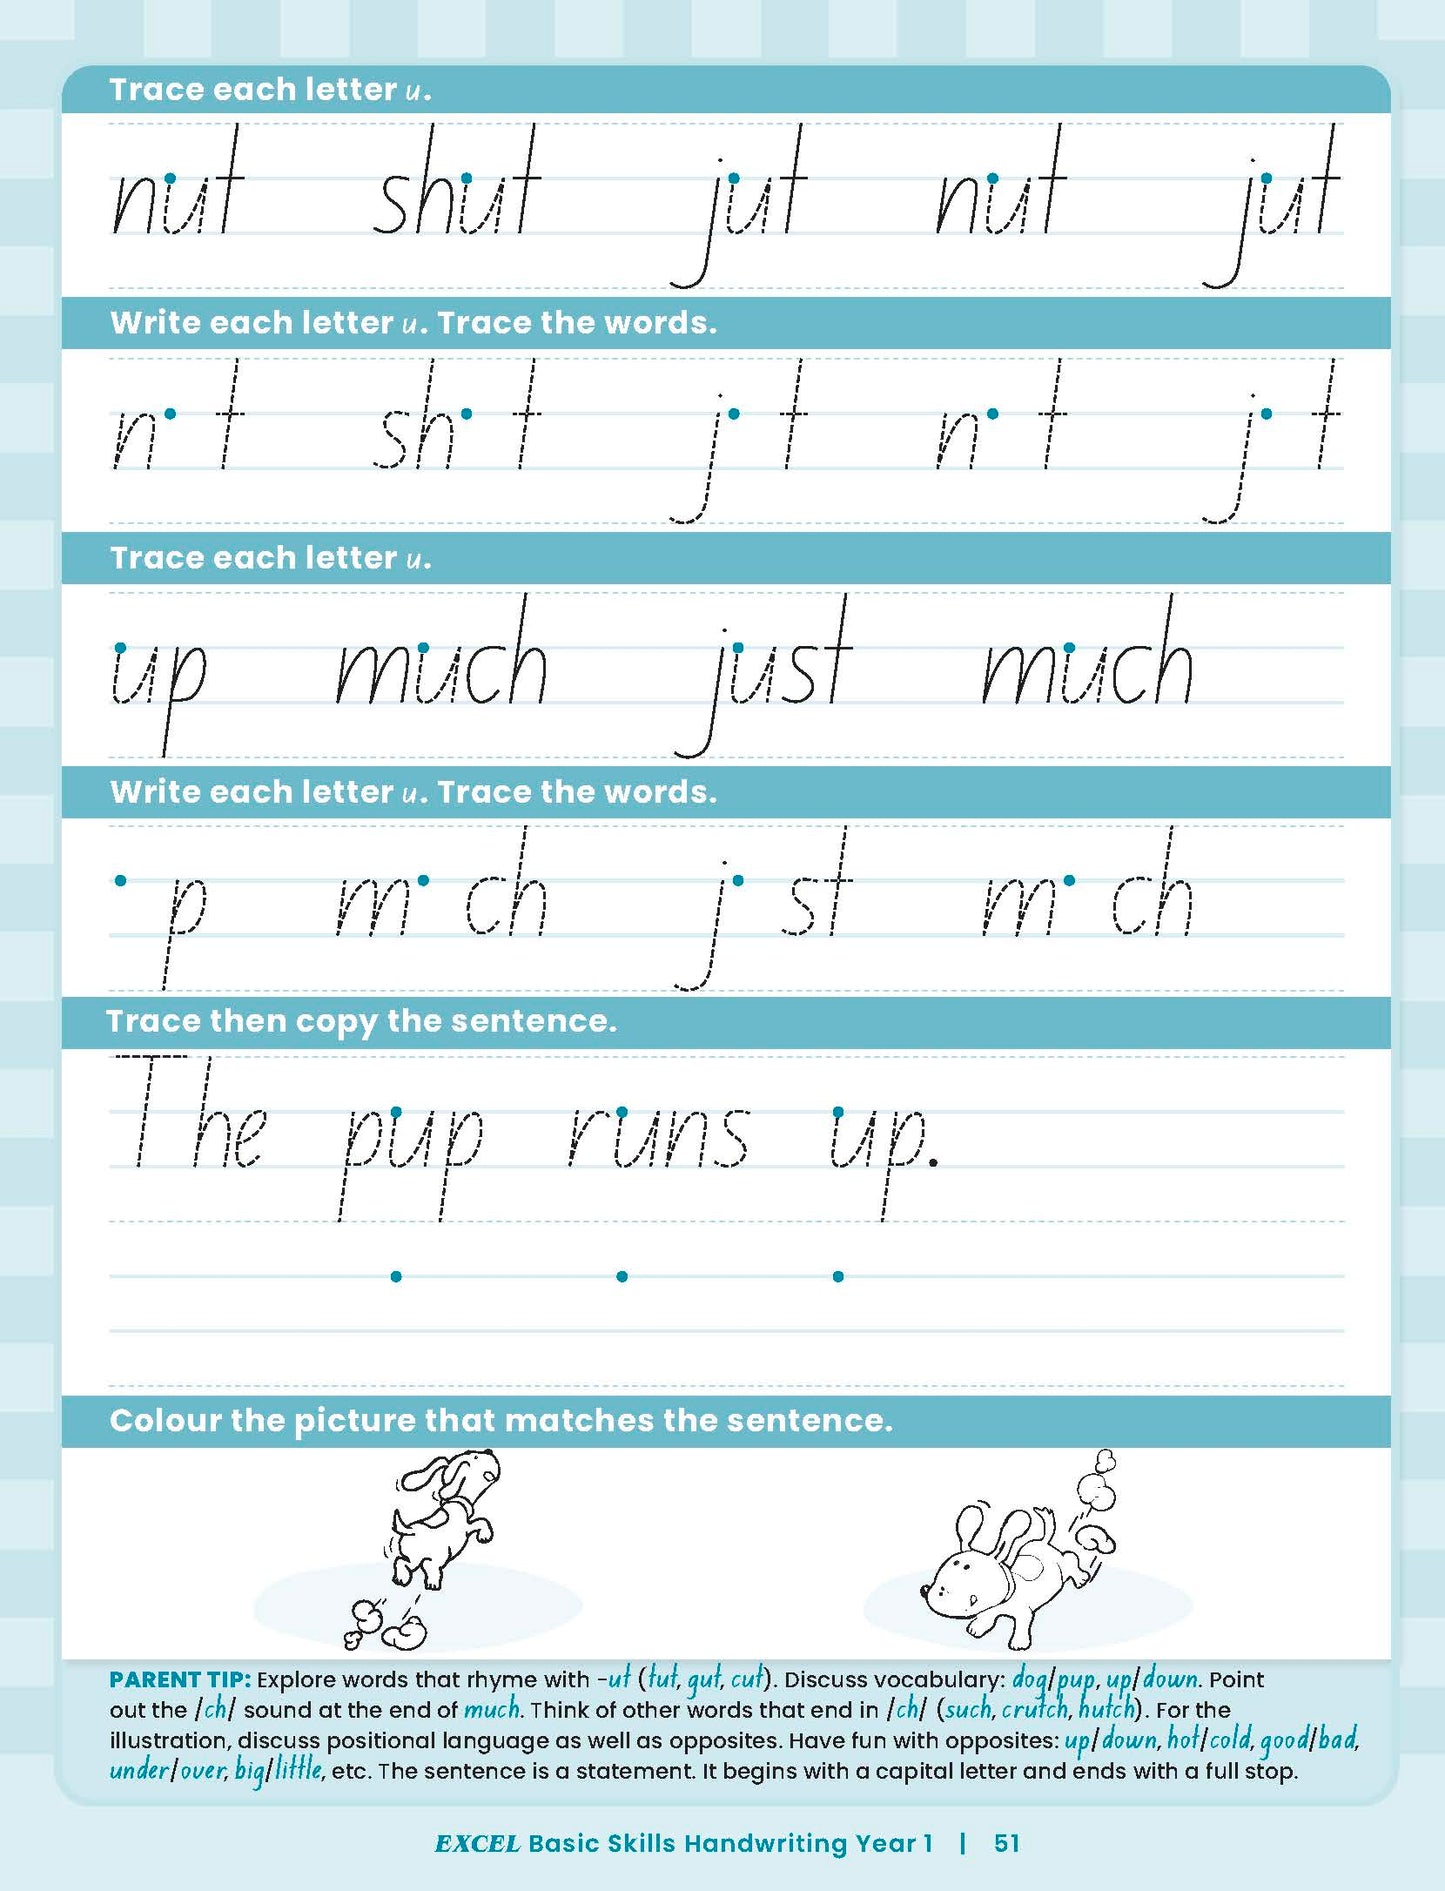 Trace each letter u.
nut shut jut nut jut
Write each letter u. Trace the words.
n t sh t j t n t j t
Trace each letter u.
up much just much
Write each letter u. Trace the words.
p m ch j st m ch
Trace then copy the sentence.
The pup runs up.
Colour the picture that matches the sentence.
PARENT TIP: Explore words that rhyme with -ut (tut, gut, cut). Discuss vocabulary: dog/pup, up/down. Point
out the /ch/ sound at the end of much. Think of other words that end in /ch/ (such, crutch, hutch). For the
illustration, discuss positional language as well as opposites. Have fun with opposites: up/down, hot/cold, good/bad,
under/over, big/little, etc. The sentence is a statement. It begins with a capital letter and ends with a full stop.
EXCEL Basic Skills Handwriting Year 1 | 51